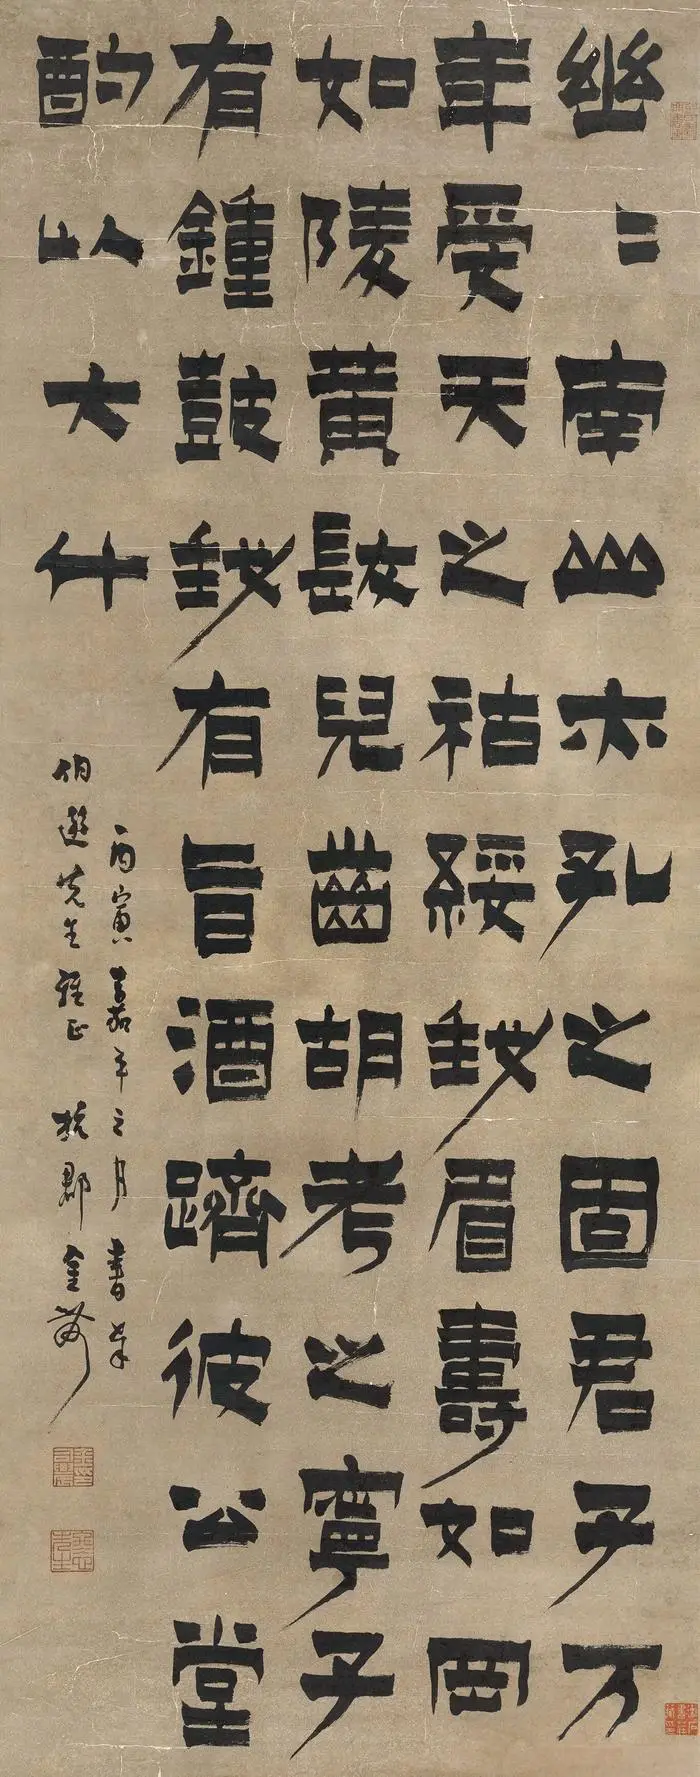 幽〻南山亦孔之固君子万
年受天之祜綏我眉壽如岡
如陵黃髮兒齒胡考之寧子
有鍾鼓我有旨酒躋彼公堂
酌以大斗
丙寅嘉平之月書奉
伯先生雅正 杭郡金農